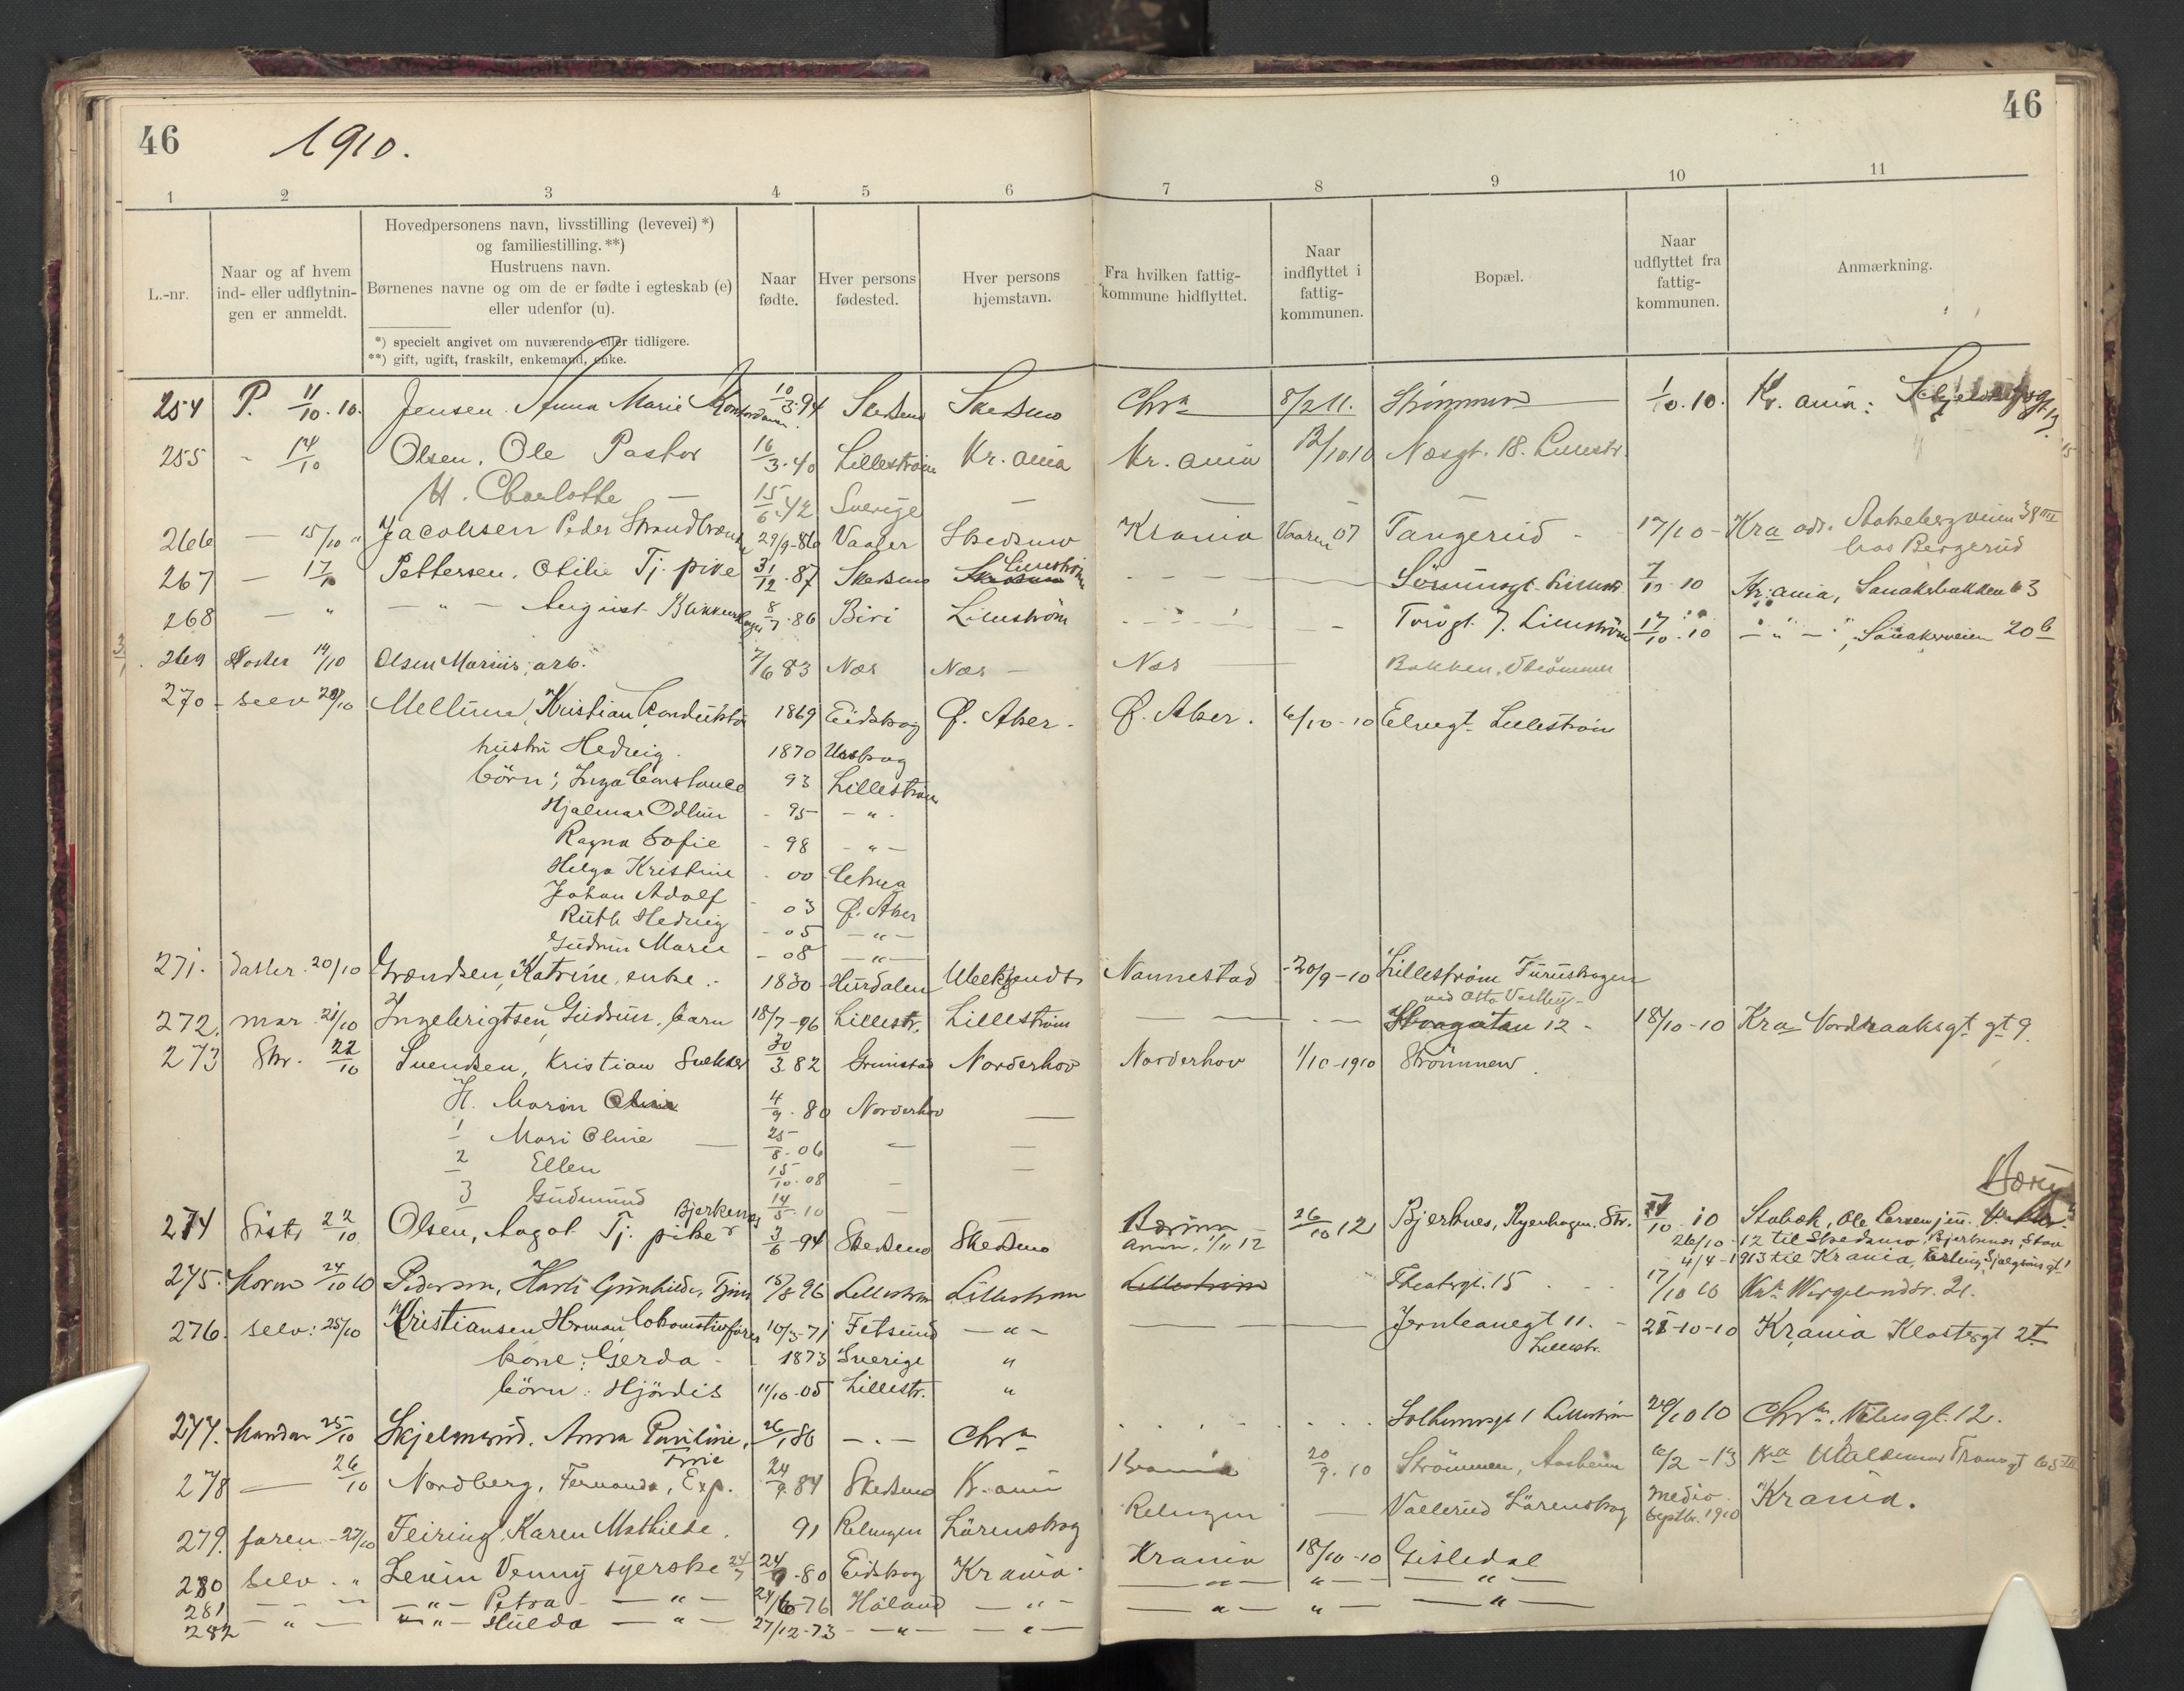 46
1910.
46
1 2 3 4 5 6 7 8 9 10 11
L.-nr.
Naar og af hvem
ind- eller udflytnin-
gen er anmeldt.
Hovedpersonens navn, livsstilling (levevei) *)
og familiestilling. **)
Hustruens navn.
Børnenes navne og om de er fødte i egteskab (e)
eller udenfor (u).
*) specielt angivet om nuværende eller tidligere.
**) gift, ugift, fraskilt, enkemand, enke.
Naar
fødte.
Hver persons
fødested.
Hver persons
hjemstavn.
Fra hvilken fattig-
kommune hidflyttet.
Naar
indflyttet i
fattig-
kommunen.
Bopæl.
Naar
udflyttet fra
fattig-
kommunen.
Anmærkning.
254 P. 11/10.10. Jensen. Anna Marie 10/3.94 Skedsmo Skedsmo Chra 8/2 11. Strömmen 1/10.10. Kr. ania:
255 - 14/10 Olsen, Ole Pastor 16/3.40 Lilleström Kr. ania Kr. ania 12/10 10 Næsgt. 18. Lillestr.
H. Charlotte — 15/6.42 Sverige — — — —
266 — 15/10 " Jacobsen Peder 29/9-86 Vaaler Skedsmo Krania Vaaren 07 Tangerud - 17/10 - Kra adr. Aakebergveien 38 III
hos Bergerud
267 — 17/10 Pettersen, Otilie Tj. pike 31/12.87 Skedsmo Lilleström 7/10.10 Kr. ania, Sanakerbakken 3
268 — " — " — August 8/7.86 Biri Lilleström Torvgt. 7. Lilleström 17/10.10 — " — ", Sanakerveien 20 b
269 19/10 Olsen Marius, arb. 7/6 83 Næs Næs — Næs Bakken, Strömmen
270 - selv 20/10 Mellum, Kristian Konduktör 1869 Eidskog Ø. Aker. Ø. Aker. 6/10-10 Elvegt. Lilleström
hustru Hedvig. 1870 Urskog
börn: Inga Constance 93 Lilleström
Hjalmar Odlun - 95 - " -
Ragna Sofie - 98 - " -
Helga Kristine - 00
Johan Adolf - 03 Ø. Aker
Ruth Hedvig - 05 — " —
Gudrun Marie - 08 — " —
271. datter. 20/10 Trændsen, Katrine, enke .- 1830 Hurdalen Nannestad - 20/9-10 Lilleström Furuskogen
ved Otto
272. mor. 21/10 Ingebrigtsen, Gudrun. barn 18/7-96 Lillestr. Lilleström — — — - — Storgaten 12 - 18/10-10 Kra Nordraaksgt gt 9.
273 Str. 22/10 Svendsen, Kristian Snekker 30/3 82 Grimstad Norderhov Norderhov 1/10-1910 Strömmen.
H. Karen 4/9.80 Norderhov —
1 Mari Oline — 25/8.06 — —
2 Ellen 15/10.08 — —
3 Gudmund 14/5.10 — —
274 Söster 22/10 Olsen, Aagot Tj. pike Bjerkenes 3/6-94 Skedsmo Skedsmo Bærum - 26/10 12 Bjerknes, Ryenhagen. Str. 10.10 Stabæk, Ole Larsen jun. Bærum
anm. 1/11 12 26/10-12 til Skedsmo, Bjerknes, Stav
4/4-1913 til Krania, Erling Sjalgsons gt 1
275. Moren 24/10 10 Pedersen, Marti Gunhilde, Tjen 15/8 96 Lilleström Lilleström Lilleström Theatergt. 15 - 17/10 10 Kra Wergelandsv. 21.
276. selv: 25/10 Kristiansen Herman, lokomotivförer 10/3-71 Fetsund — " — — — — Jernbanegt 11. - 28-10-10 Krania Klostergt 21
Lillestr.
kone: Gerda - - 1873 Sverige "
börn: Hjördis 11/10-05 Lillestr. "
277. Manden 25/10 Skjelmerud. Anna Pauline. Frue 26/1 80 — . — Chra Solheimsgt 1 Lilleström 20/10 10 Chra. Nilsensgt. 12.
278 — 26/10 Nordberg, Fernanda, Exp. 24/9.84 Skedsmo K. ania Krania 20/9.10 Strömmen, Aasheim 6/2-13 Kra Waldemar Thranesgt 65 III
279. faren - 27/10 Feiring Karen Mathilde. 91 Relingen Lörenskog Relingen — Vallerud Lörenskog Medio Septbr. 1910 Krania.
280 selv. " Levin Venny syerske 24/7.80 Eidskog Krania Krania 18/10-10 Gisledal
281 — — — " — Petra — — " — 24/6-76 Höland — " — — " — " — — " —
282 — " — — " — Hulda — " — 27/12-73 — " — — " — — " — " — " —